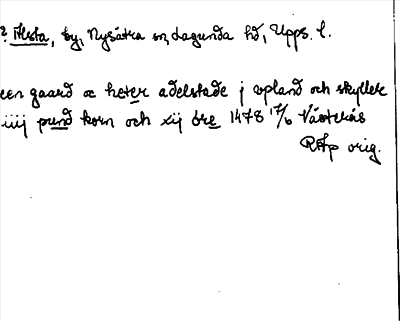 ? Älsta, by, Nysätra sn, Lagunda hd, Upps. l.
een gaard oc heter adelstade j vpland och skyller
iiij pund korn och xij öre 1478 17/6 Västerås
RAp orig.